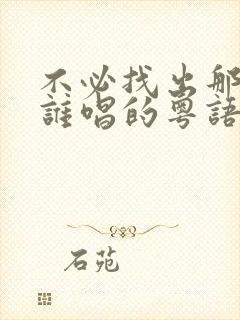 不必找出那
誰唱的粵語
石苑